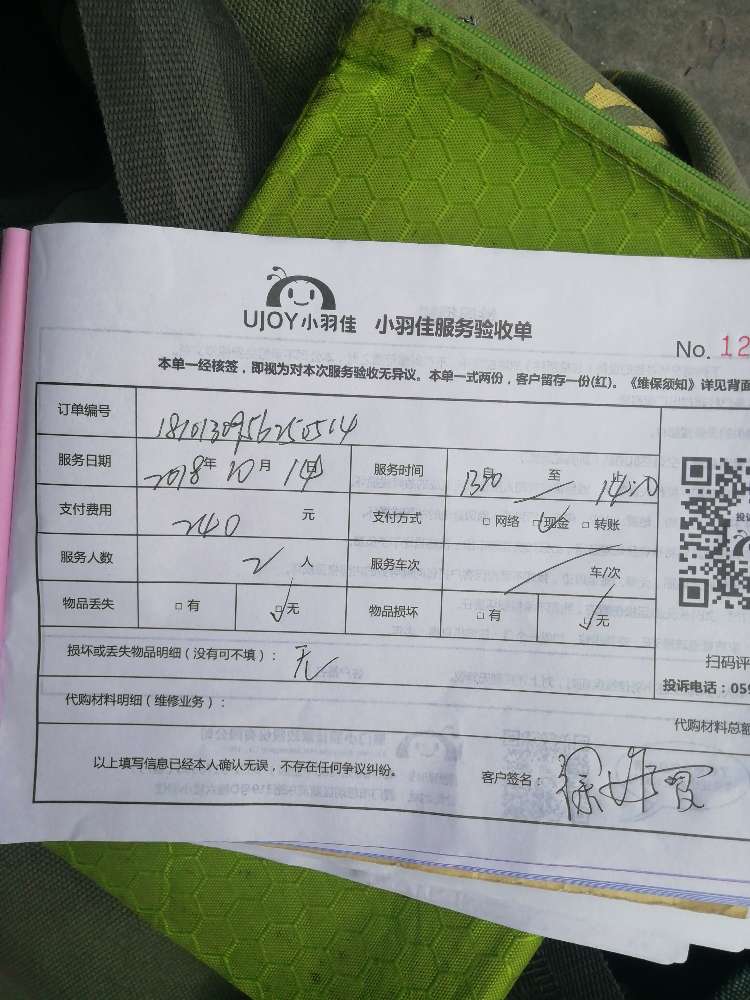 UJOY小羽佳 小羽佳服务验收单
No. 12
本单一经核签，即视为对本次服务验收无异议。本单一式两份，客户留存一份(红)。《维保须知》详见背面
订单编号 1810130956250514
服务日期 2018年10月14日 服务时间 1330 至 1400
支付费用 240 元 支付方式 □网络 □现金 □转账
服务人数 2 人 服务车次 车/次
物品丢失 □有 □无 物品损坏 □有 □无
损坏或丢失物品明细（没有可不填）： 无
扫码评
投诉电话：059
代购材料明细（维修业务）： 代购材料总额
以上填写信息已经本人确认无误，不存在任何争议纠纷。 客户签名：